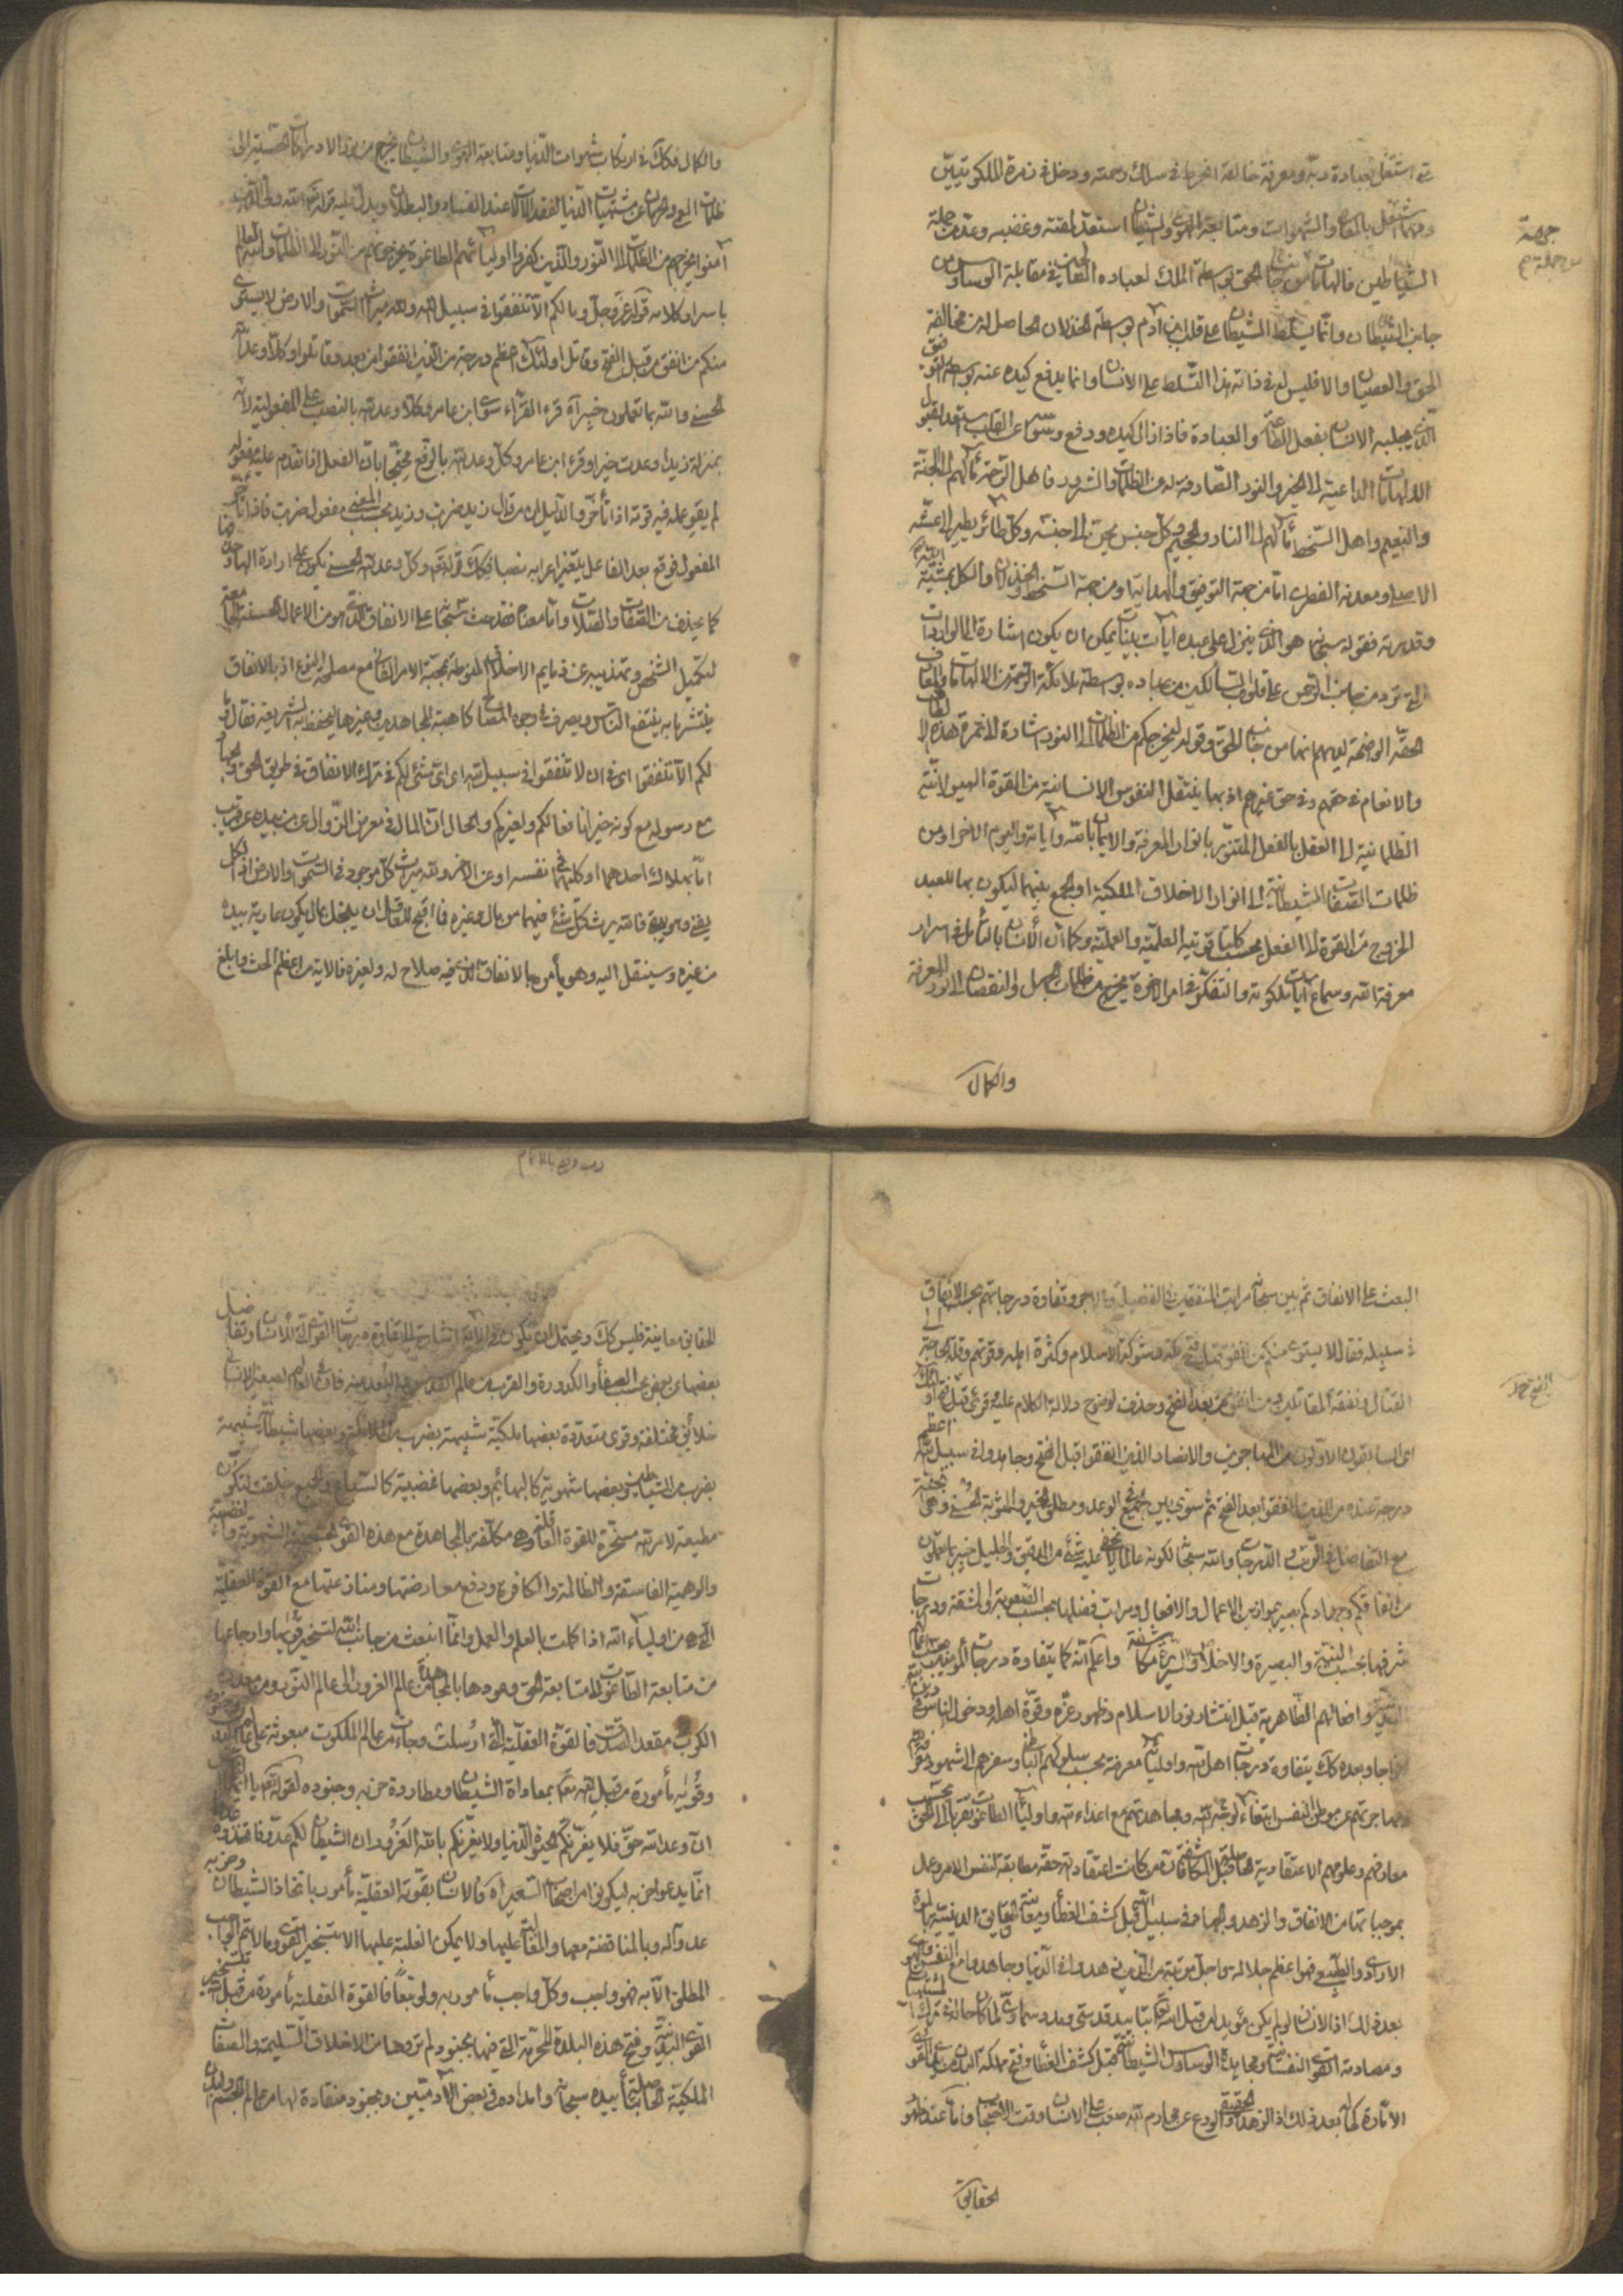 ثم استغل بعبادة ربه ومعرفة خالقه انخرط في سلك رحمته ودخل في زمرة الملكوتيين
ومهما اشتغل بالمعاصي والشهوات ومتابعة الهوى والشيطان استعد لمقته وغضبه وعد من جملة
الشياطين فالهامات من جانب الحق بواسطة الملك لعباده الصالحين في مقابلة الوساوس من
جانب الشيطان وانما يسلط الشيطان على قلب ابن آدم بواسطة الخذلان الحاصل له من مخالفة
الحق والعصيان والا فليس له في ذاته هذا التسلط على الانسان وانما يدفع كيده عنه بواسطة التوفيق
الذي يجلبه الانسان بفعل الطاعة والعبادة فاذا زال كيده ودفع وسوسته عن القلب يستعد لقبول
الالهامات الداعية الى الخير والنور الصارفة له من الظلمات والشرور فاهل الرحمة مآلهم الى الجنة
والنعيم واهل السخط مآلهم الى النار والجحيم وكل جنس يحن الى جنسه وكل طائر يطير الى عشه
الاصلي ومعدنه الفطري اما من جهة التوفيق والهداية او من جهة السخط والخذلان والكل بمشية الله
وقدرته فقوله سبحانه هو الذي ينزل على عبده آيات بينات يمكن ان يكون اشارة الى الواردات
التي ترد من جانب الرحمن على قلوب السالكين من عباده بواسطة ملائكة الرحمة من الالهامات والمعارف
الحقة الواضحة لديهم انها من جانب الحق وقوله ليخرجكم من الظلمات الى النور اشارة الى ثمرة هذه الالطاف
والانعام في حقهم وفي حق غيرهم اذ بها ينتقل النفوس الانسانية من القوة الهيولانية
الظلمانية الى العقل بالفعل المتنور بانوار المعرفة والايمان بالله وآياته واليوم الآخر او من
ظلمات الصفات الشيطانية الى انوار الاخلاق الملكية او الجمع بينهما ليكون بها للعبد
الخروج من القوة الى الفعل بحسب كلتا قوتيه العلمية والعملية وكما ان الانسان بالتأمل في اسرار
معرفة الله وسماع آيات ملكوته والتفكر في امر الآخرة يخرج من ظلمات الجهل والنقصان الى نور المعرفة
والكمال
والكمال فكذلك في ارتكاب شهوات الدنيا ومتابعة الهوى والشيطان يخرج من نور الادراكات الحسية الى
آمنوا يخرجهم من الظلمات الى النور والذين كفروا اولياؤهم الطاغوت يخرجونهم من النور الى الظلمات والله العالم
باسرار كلامه قوله عز وجل وما لكم الا تنفقوا في سبيل الله ولله ميراث السموات والارض لا يستوي
منكم من انفق من قبل الفتح وقاتل اولئك اعظم درجة من الذين انفقوا من بعد وقاتلوا وكلا وعد الله
الحسنى والله بما تعملون خبير آه قرء القراء سوى ابن عامر وكلا وعد الله بالنصب على المفعولية لانه
بمنزلة زيدا وعدت خيرا وقرء ابن عامر وكل وعد الله بالرفع محتجا بان الفعل اذا تقدم عليه مفعوله
لم يقو عمله فيه قوته اذا تأخر والدليل ان من قال زيد ضربت وزيد بحسب المعنى مفعول ضربت فاذا تأخر
المفعول فوقع بعد الفاعل يتغير اعرابه نصبا فكذلك قوله تعالى وكل وعد الله الحسنى يكون على ارادة الهاء وحذفها
كما يحذف من الصفات والصلات واما معناه فقد حث سبحانه على الانفاق الذي هو من الاعمال الحسنة الجامعة
لتكميل الشخص وتهذيبه عن ذمايم الاخلاق المنوطة بمحبة الامر الفاني مع مصلحة النوع اذ بالانفاق
ينتشر ما به ينتفع الناس ويصرف في وجوه المصالح كاهبة المجاهدين وغيرها ليحفظ به الشريعة فقال وما
لكم الا تنفقوا اي في ان لا تنفقوا في سبيل الله اي اي شيء لكم في ترك الانفاق في طريق الحق والجهاد
مع رسوله مع كونه خيرا نافعا لكم ولغيركم والحال ان المال في معرض الزوال عن من بيده عن قريب
اما بهلاك احدهما او كليهما في نفسه او عن الآخر ولله ميراث كل موجود في السموات والارض اذ الكل
يفنى وهو يبقى فالله يرث كل شيء فيهما من مال وغيره فما اقبح للعاقل ان يبخل بمال يكون عارية بيده
من غيره وسينتقل اليه وهو يأمره بالانفاق الذي فيه صلاح له ولغيره فالآية من اعظم الحث وابلغ
البعث على الانفاق ثم بين سبحانه مراتب المنفقين في الفضيلة والاجر وتفاوت درجاتهم بحسب الانفاق
في سبيله فقال لا يستوي منكم من انفق قبل فتح مكة وشوكة الاسلام وكثرة اهله وقوتهم وقلة الحاجة الى
القتال ونفقة المقاتلين ومن انفق من بعد الفتح وحذف لوضوح دلالة الكلام عليه وقرئ قبل الفتح اولئك
اي السابقون الاولون من المهاجرين والانصار الذين انفقوا قبل الفتح وجاهدوا في سبيل الله اعظم
درجة عنده من الذين انفقوا بعد الفتح ثم سوى بين الجميع في الوعد ومطلق الخير والمثوبة الحسنى وهي الجنة
مع التفاضل والتفاوت في الدرجات والله سبحانه لكونه عالما لا يخفى عليه شيء من الدقيق والجليل خبير بما تعملون
من انفاقكم وجهادكم بصير بموازين الاعمال والافعال ومراتب فضلها بحسب الصعوبة والمشقة ودرجات
شرفها بحسب النية والبصيرة والاخلاص مكاشفة واعلم انه كما يتفاوت درجات المؤمنين بحسب اعمالهم
البدنية وافعالهم الظاهرية قبل انتشار نور الاسلام وظهور عزه وقوة اهله ودخول الناس في دين الله
افواجا وبعده كذلك يتفاوت درجات اهل الله واوليائه معرفة بحسب سلوكهم الباطني وسفرهم الى شهود معرفة
ومهاجرتهم عن موطن النفس ابتغاء لوجه الله ومجاهدتهم مع اعداء الله واولياء الطاغوت تقربا الى الحق بحسب
معارفهم وعلومهم الاعتقادية الحاصلة قبل المكاشفة فان من كانت اعتقاداته حقة مطابقة لنفس الامر وعمل
بموجباتها من الانفاق والزهد والجهاد في سبيل الله قبل كشف الغطاء ومعاينة الحقايق الدينية
فهو اعظم جلالة واجل مرتبة من الذين زهدوا في الدنيا وجاهدوا مع النفس والهوى
بعد ذلك اذ الانسان لو لم يكن مؤيدا من قبل الله تعالى بتأييد قدسي ومدد سماوي لما كان حاله في ترك
ومصادمة القوى النفسانية ومجاهدة الوساوس الشيطانية قبل كشف الغطاء وفتح مملكة البدن من ايدي القوى
الامارة كما بعد ذلك اذ الزهد الحقيقي والورع عن محارم الله صعب على الانسان وقت الاحتجاب واما عند ظهور
الحقايق
الحقايق معاينة فليس كذلك ويحتمل ان يكون في الآية اشارة الى تفاوت درجات القوى التي للانسان وتفاضل
بعضها عن بعض بحسب الصفاء والكدورة والقرب من عالم القدس والبعد عنه فان في العالم الصغير الانساني
خلائق مختلفة وقوى متعددة بعضها ملكية شبيهة بضرب من الملائكة وبعضها شيطانية شبيهة
بضرب من الشياطين وبعضها شهوية كالبهائم وبعضها غضبية كالسباع والجميع خلقت لتكون
مطيعة لامر الله مسخرة للقوة العاقلة وهي مكلفة بالمجاهدة مع هذه القوى الحسية الشهوية والغضبية
والوهمية الفاسقة والظالمة والكافرة ودفع معارضتها ومنازعتها مع القوة العقلية
التي هي من اولياء الله اذا كملت بالعلم والعمل وانما انبعثت من جانب الله لتسخير قواها وارجاعها
من متابعة الطاغوت الى متابعة الحق وعودها بالمجاهدة من عالم الغرور الى عالم النور ومن معدن
الكرب الى مقعد الصدق فالقوة العقلية التي ارسلت وجاءت من عالم الملكوت مبعوثة على عالم البدن
وقواه مأمورة من قبل الله تعالى بمعاداة الشيطان ومطاردة حزبه وجنوده لقوله تعالى يا ايها الناس
ان وعد الله حق فلا يغرنكم الحيوة الدنيا ولا يغرنكم بالله الغرور ان الشيطان لكم عدو فاتخذوه عدوا
انما يدعو حزبه ليكونوا من اصحاب السعير آه فالانسان بقوته العقلية مأمور باتخاذ الشيطان وحزبه
عدوا له وبالمناقضة معها والغلبة عليها ولا يمكن الغلبة عليها الا بتسخير القوى وما لا يتم الواجب
المطلق الا به فهو واجب وكل واجب مأمور به ولو تبعا فالقوة العقلية مأمورة من قبل الله بتسخير
القوى البدنية وفتح هذه البلدة المحرمة التي فيها بجنود لم تروها من الاخلاق السليمة والصفات
الملكية الحاصلة بتأييده سبحانه وامداده في بعض الآدميين وبجنود منقادة لها من عالم الجسم والبدن